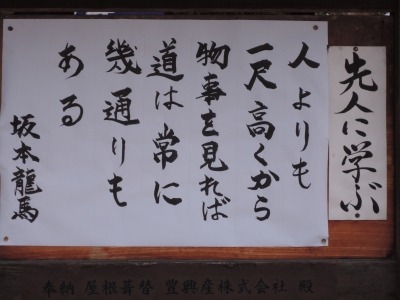 先人に学ぶ
人よりも
一尺高くから
物事を見れば
道は常に
幾通りも
ある
坂本龍馬
奉納 屋根葺替 豊興産株式会社 殿